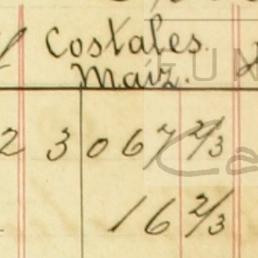 Costales.
Maiz.
2 3 067 2/3
16 2/3